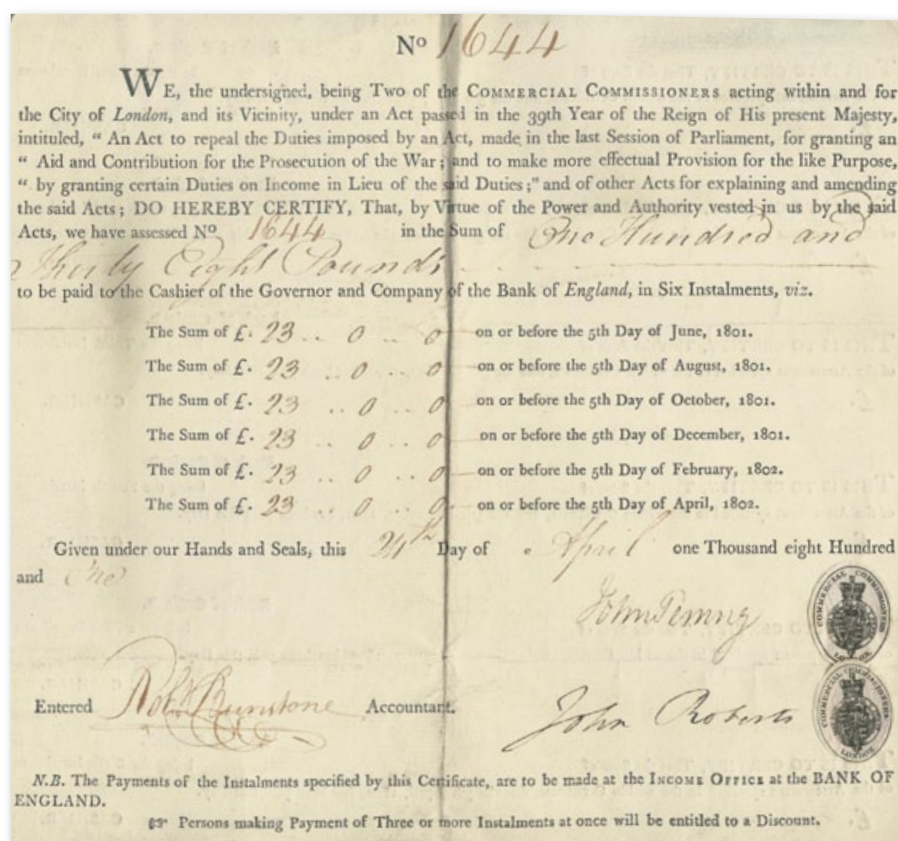 No 1644
WE, the undersigned, being Two of the COMMERCIAL COMMISSIONERS acting within and for
the City of London, and its Vicinity, under an Act passed in the 39th Year of the Reign of His present Majesty,
intituled, “ An Act to repeal the Duties imposed by an Act, made in the last Session of Parliament, for granting an
“ Aid and Contribution for the Prosecution of the War; and to make more effectual Provision for the like Purpose,
“ by granting certain Duties on Income in Lieu of the said Duties;” and of other Acts for explaining and amending
the said Acts; DO HEREBY CERTIFY, That, by Virtue of the Power and Authority vested in us by the said
Acts, we have assessed No. 1644 in the Sum of One Hundred and
Thirty Eight Pounds
to be paid to the Cashier of the Governor and Company of the Bank of England, in Six Instalments, viz.
The Sum of £. 23 .. 0 .. 0 on or before the 5th Day of June, 1801.
The Sum of £. 23 .. 0 .. 0 on or before the 5th Day of August, 1801.
The Sum of £. 23 .. 0 .. 0 on or before the 5th Day of October, 1801.
The Sum of £. 23 .. 0 .. 0 on or before the 5th Day of December, 1801.
The Sum of £. 23 .. 0 .. 0 on or before the 5th Day of February, 1802.
The Sum of £. 23 .. 0 .. 0 on or before the 5th Day of April, 1802.
Given under our Hands and Seals, this 24th Day of April one Thousand eight Hundred
and One
COMMERCIAL COMMISSIONERS
LONDON
John
Entered Accountant.
John Roberts
COMMERCIAL COMMISSIONERS
LONDON
N.B. The Payments of the Instalments specified by this Certificate, are to be made at the INCOME OFFICE at the BANK OF
ENGLAND.
☞ Persons making Payment of Three or more Instalments at once will be entitled to a Discount.